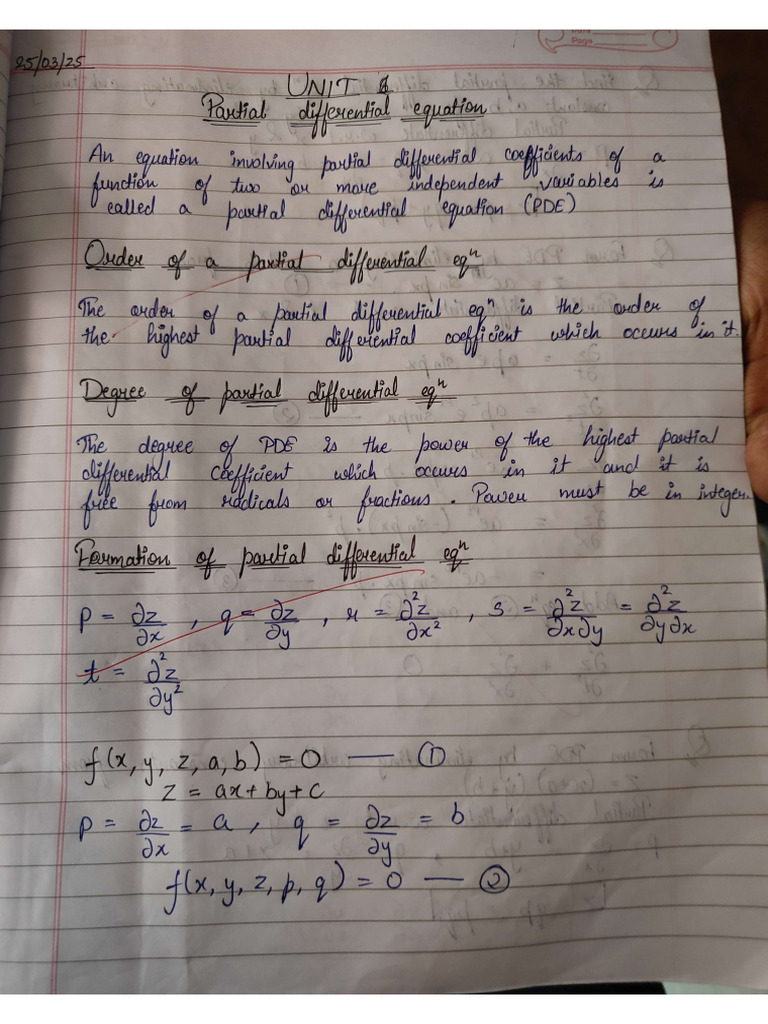 25/03/25
UNIT
Partial differential equation
An equation involving partial differential coefficients of a
function of two or more independent variables is
called a partial differential equation (PDE)
Order of a partial differential eqⁿ
The order of a partial differential eqⁿ is the order of
the highest partial differential coefficient which occurs in it.
Degree of partial differential eqⁿ
The degree of PDE is the power of the highest partial
differential coefficient which occurs in it and it is
free from radicals or fractions. Power must be in integer.
Formation of partial differential eqⁿ
p = ∂z/∂x , q = ∂z/∂y , r = ∂²z/∂x² , s = ∂²z/∂x∂y = ∂²z/∂y∂x
t = ∂²z/∂y²
f(x, y, z, a, b) = 0 — ①
z = ax + by + c
p = ∂z/∂x = a , q = ∂z/∂y = b
f(x, y, z, p, q) = 0 — ②